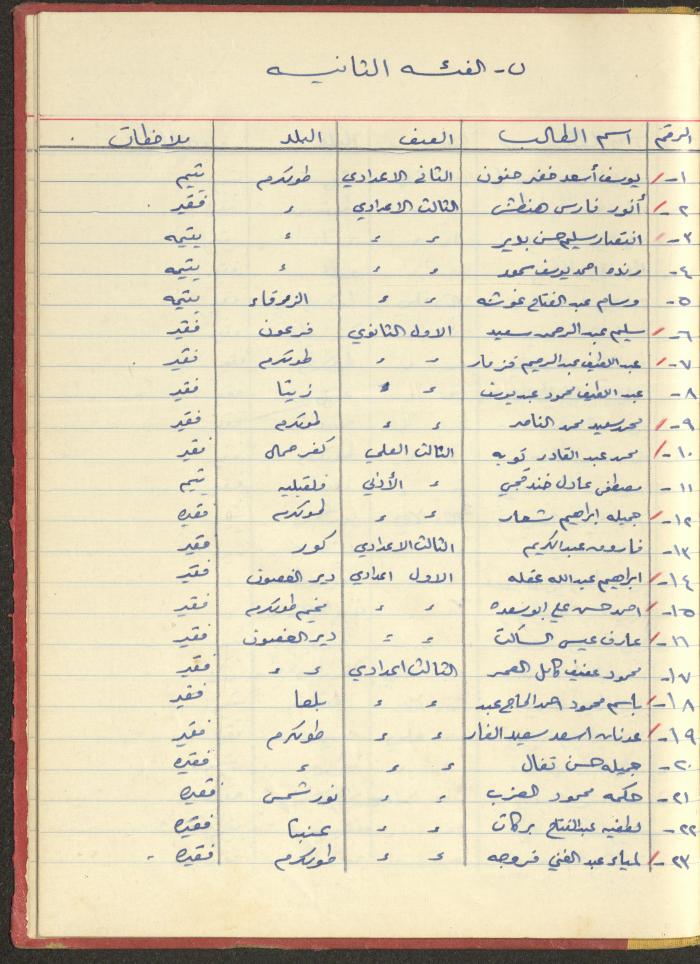 ں- الفئه الثانيه
الرقم اسم الطالب الصف البلد ملاحظات
١- يوسف أسعد خضر حنون الثاني الاعدادي طولكرم يتيم
٢- أنور فارس الثالث الاعدادي ״ فقير
٣- انتصار سليم حسن بدير ״ ״ ״ يتيمه
٤- رنده احمد يوسف ״ ״ ״ يتيمه
٥- وسام عبد الفتاح غوشه ״ ״ يتيمه
٦- سليم عبد الرحمن سعيد الاول الثانوي فرعون فقير
٧- عبد اللطيف عبد الرحيم ״ ״ طولكرم فقير
٨- عبد اللطيف محمود عبد يوسف ״ ״ زيتا فقير
٩- محمد سعيد محمد الناصر ״ ״ طولكرم فقير
١٠- محمد عبد القادر الثالث العلمي كفر جمال فقير
١١- مصطفى عادل خندقجي ״ الأدبي قلقيليه يتيم
١٢- جميله ابراهيم شعار ״ ״ طولكرم فقيره
١٣- فاروق عبد الكريم الثالث الاعدادي كور فقير
١٤- ابراهيم عبد الله عقله الاول اعدادي دير الغصون فقير
١٥- احمد حسن علي ابو سعده ״ ״ مخيم طولكرم فقير
١٦- عارف عيسى الساكت ״ ״ دير الغصون فقير
١٧- محمود عفيف كامل العمر الثالث اعدادي ״ ״ فقير
١٨- باسم محمود احمد الحاج عبد ״ ״ بلعا فقير
١٩- عدنان اسعد سعيد الفار ״ ״ طولكرم فقير
٢٠- جميله حسن ״ ״ ״ فقيره
٢١- حكمه محمود العزب ״ ״ نور شمس فقيره
٢٢- لطفيه عبد الفتاح بركات ״ ״ عنبتا فقيره
٢٣- لمياء عبد الغني فروجه ״ ״ طولكرم فقيره